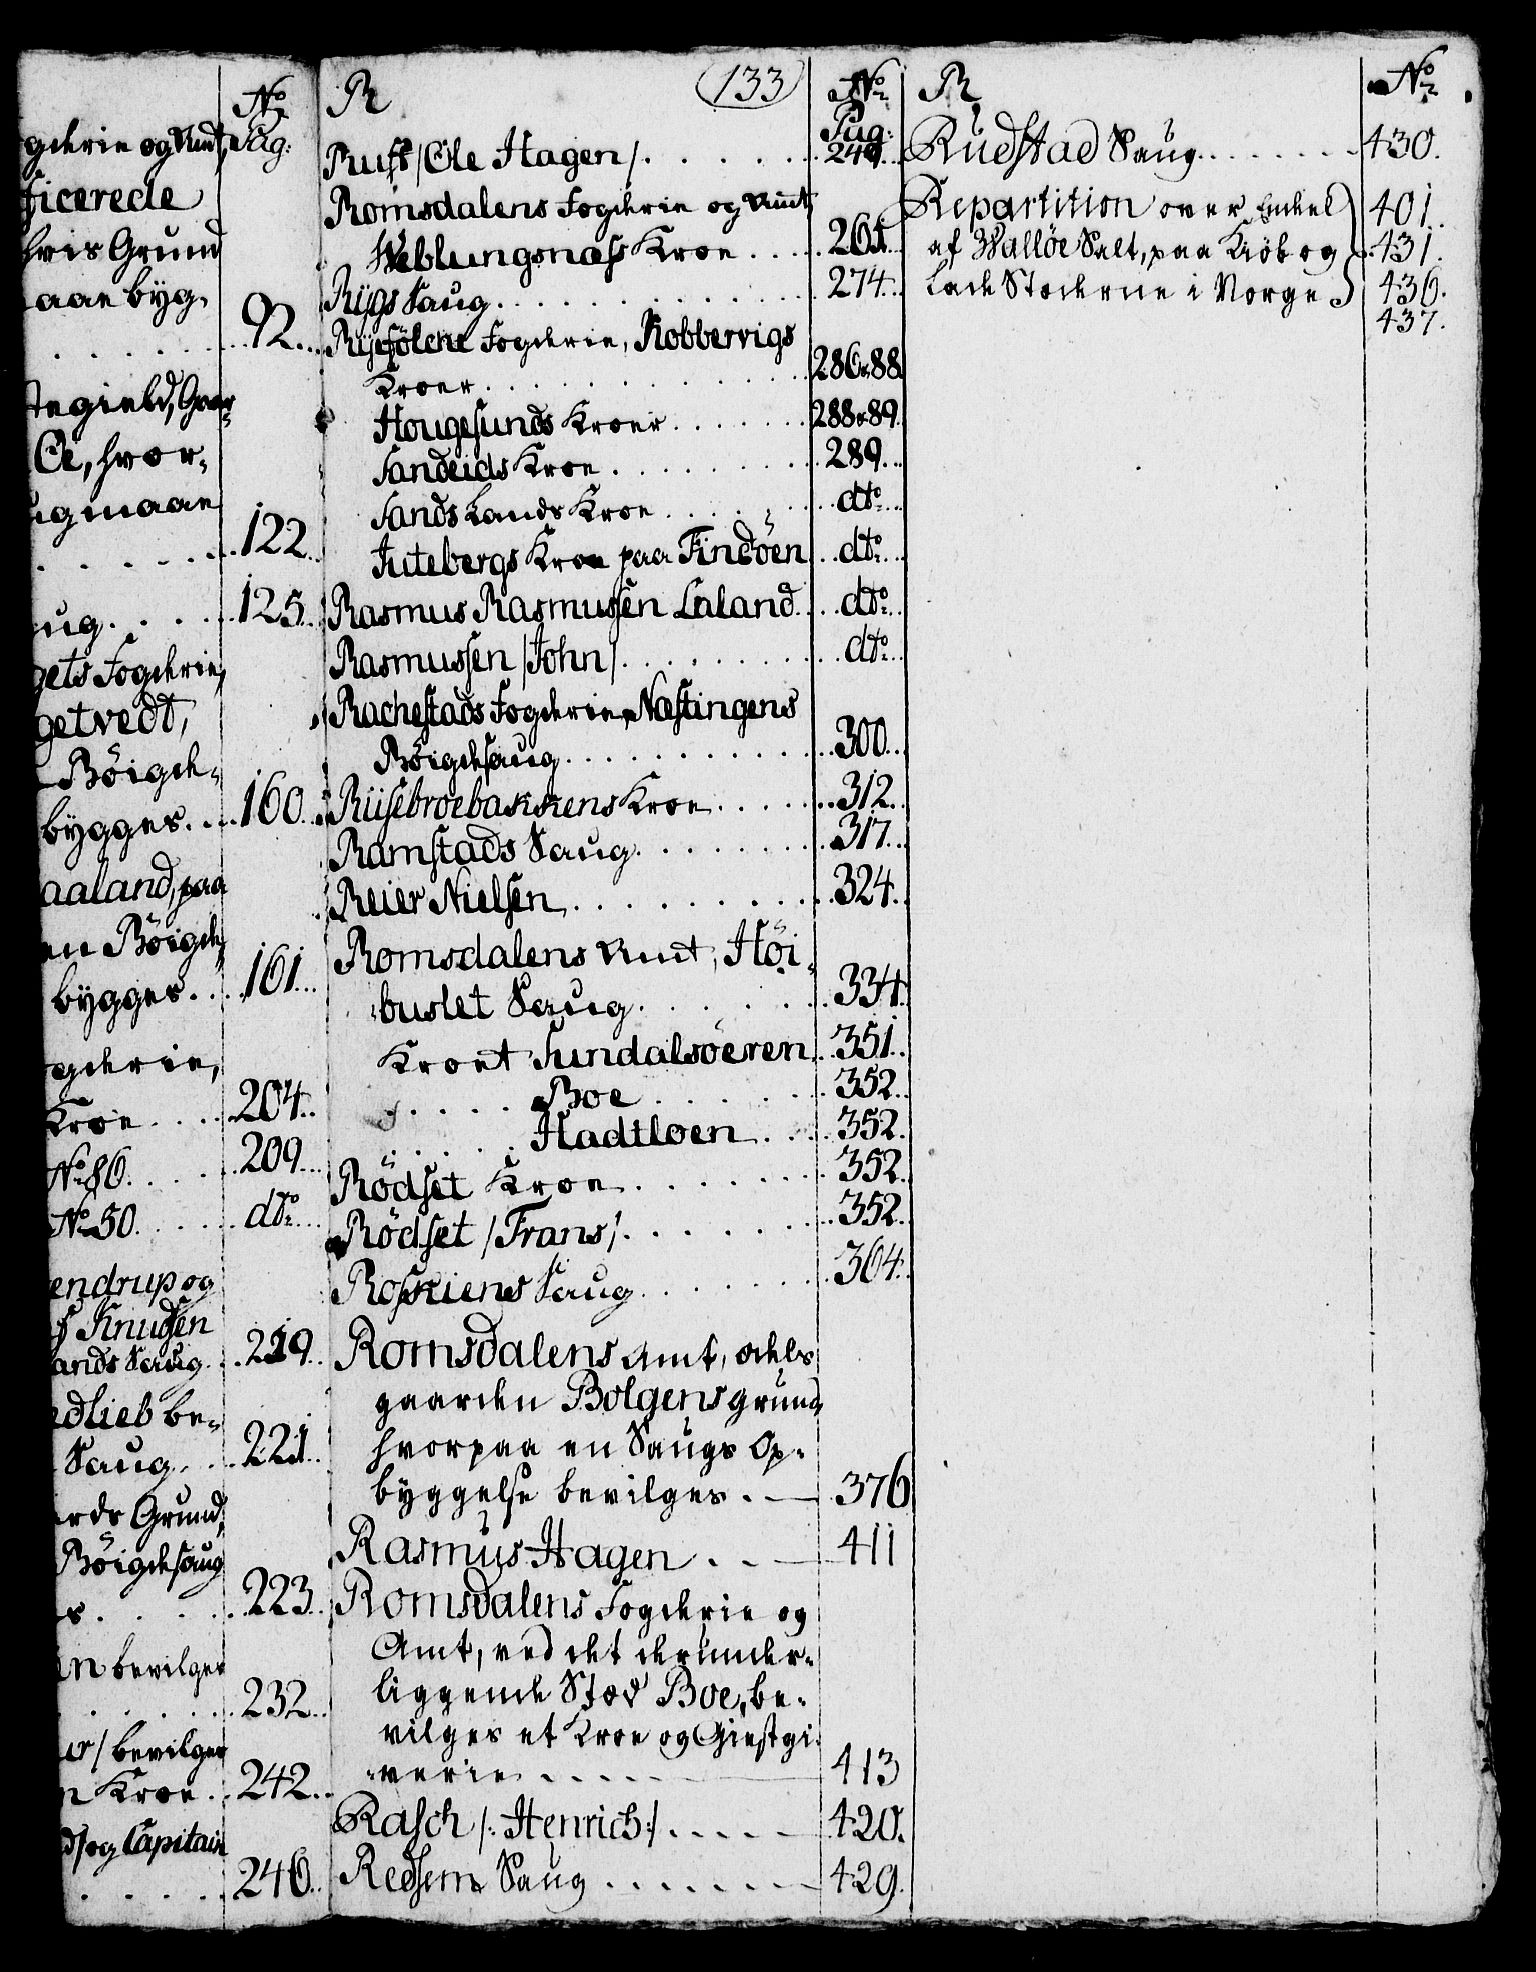 No
Pag:
gderie og Amt,
ficerede
hvis Grund
aae byg,
. . . . . . . 92.
tegield, Gaar-
Oe, hvor-
ugmaae
. . . . . . 122.
ug. . . . . 125.
gets Fogderie,
getvedt,
Böigde-
bygges. . . 160.
aaland, paa
en Böigde
bygges. . . 161.
gderie,
Kroe. . . . 204.
No 86. . . . 209.
No 50. . . . dto.
endrup og
Knudsen
ands Saug. . . 219.
edlieb be-
Saug. . . 221.
ards Grund,
Böigdesaug
s. . . . . . 223.
en bevilges
. . . . . . 232.
er/ bevilges
n Kroe. . . 242.
og Capitain
. . . . . . 246.
R 133 No
Pag:
Rust /Ole Hagen/. . . . . . 249.
Romsdalens Fogderie og Amt
Weblungsnæss Kroe . . . . 261.
Rÿgs Saug. . . . . . . . . 274.
Rÿefölche Fogderie, Kobbervigs
Kroer. . . . . . . . . . 286 & 88.
Hougesunds Kroer. . . . . . 288 & 89.
Sandeids Kroe. . . . . . . 289.
Sands Lands Kroe. . . . . . dto.
Jutebergs Kroe paa Findöen. . dto.
Rasmus Rasmussen Laland. . . dto.
Rasmussen /John/. . . . . . . dto.
Rachestads Fogderie, Næstingens
Böigdesaug. . . . . . . . 300.
Riisebroebakkens Kroe. . . . . 312.
Ramstads Saug. . . . . . . . 317.
Reier Nielsen. . . . . . . . 324.
Romsdalens Amt, Höi-
buslet Saug. . . . . . . 334.
Kroet Sundalsöeren. . 351.
. . . . . Boe . . . . . . 352.
. . . . . Hadtloen. . . . 352.
Rödset Kroe. . . . . . . 352.
Rödset /Frans/. . . . . . . 352.
Roskiens Saug. . . . . . . 364.
Romsdalens Amt, odels
gaarden Bolgens grund
hvorpaa en Saugs Op-
byggelse bevilges. — 376
Rasmus Hagen . . — 411
Romsdalens Fogderie og
Amt, ved det derunder-
liggende Stæd Boe, be-
vilges et Kroe og Giestgi-
verie . . . . . 413
Rasch /: Henrich :/ . . . . — 420.
Redsem Saug . . . . . . — 429.
R No
Rudstad Saug. . . . . . . 430.
Repartition over Enkel } 401.
af Walløe Salt, paa Kiøb og } 431.
Lade Stæderne i Norge } 436.
437.